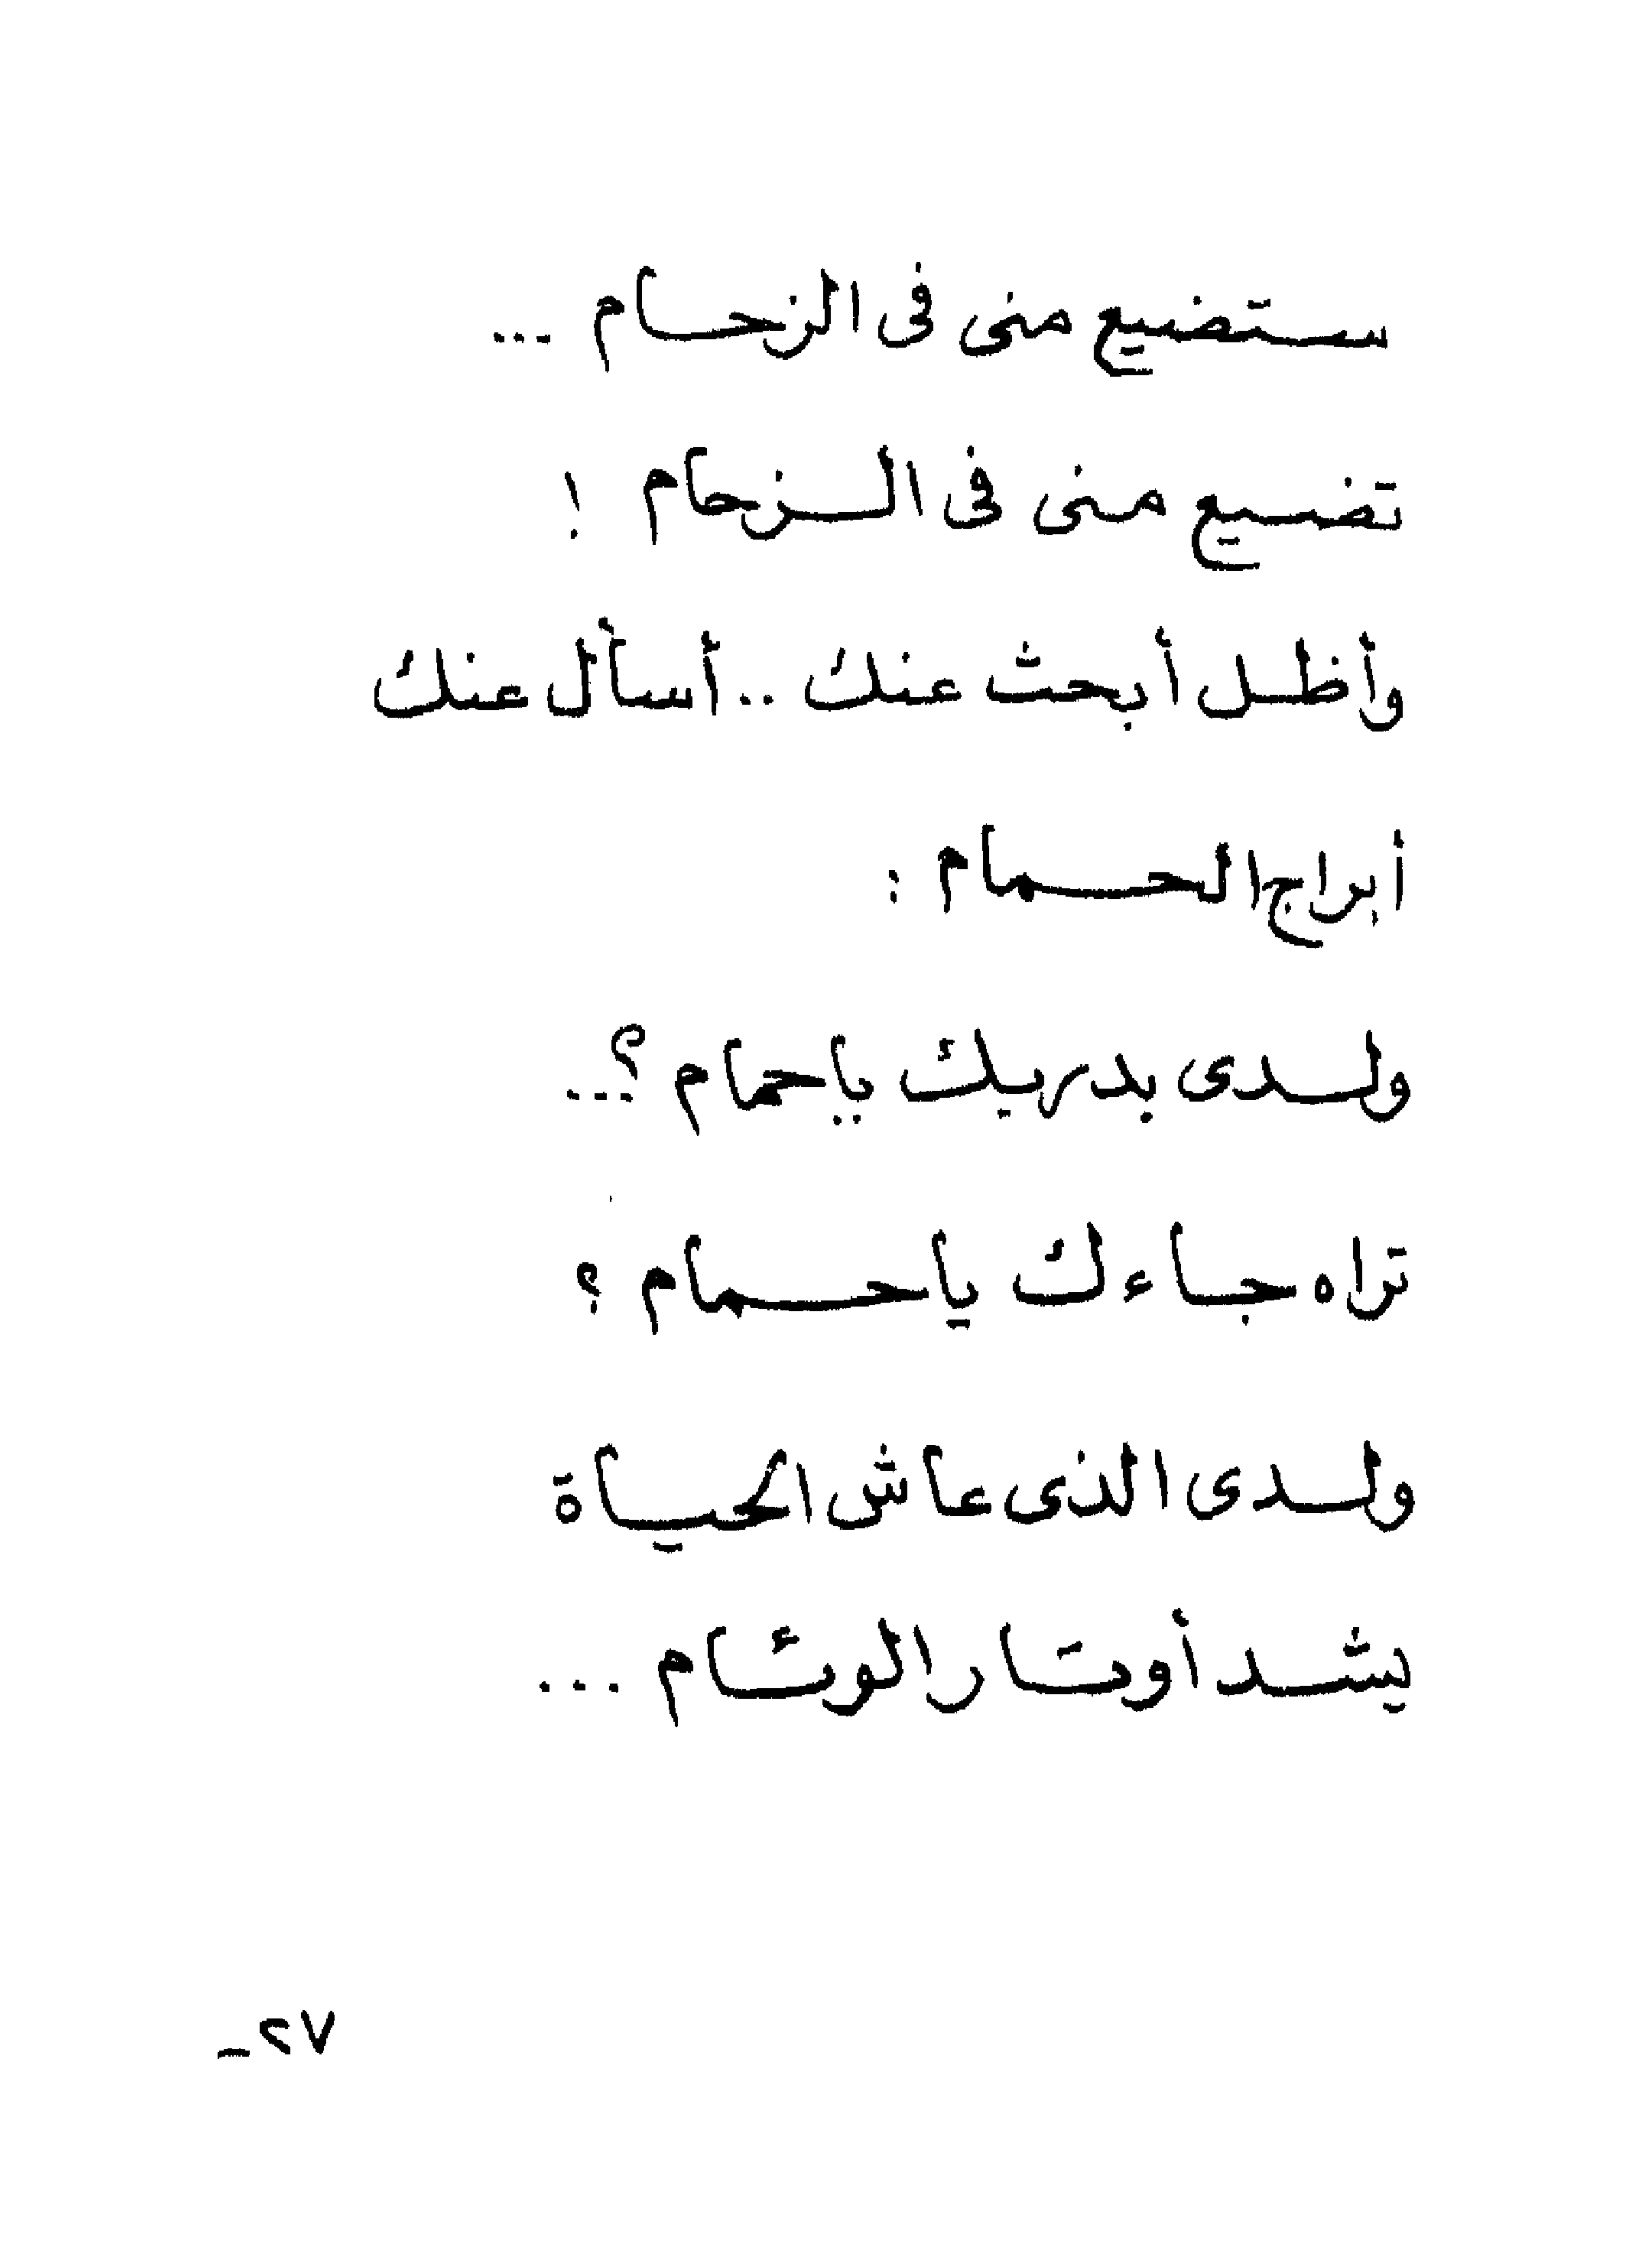 ستضيع منى فى الزحام ...
تضيع منى فى الزحام !
وأظل أبحث عنك .. أسأل عنك
أبراج الحمام :
ولدى بدربك ياحمام ؟...
تراه جاءك ياحمام ؟
ولدى الذى عاش الحياة
يشد أوتار الوئام ...
٢٧ـ